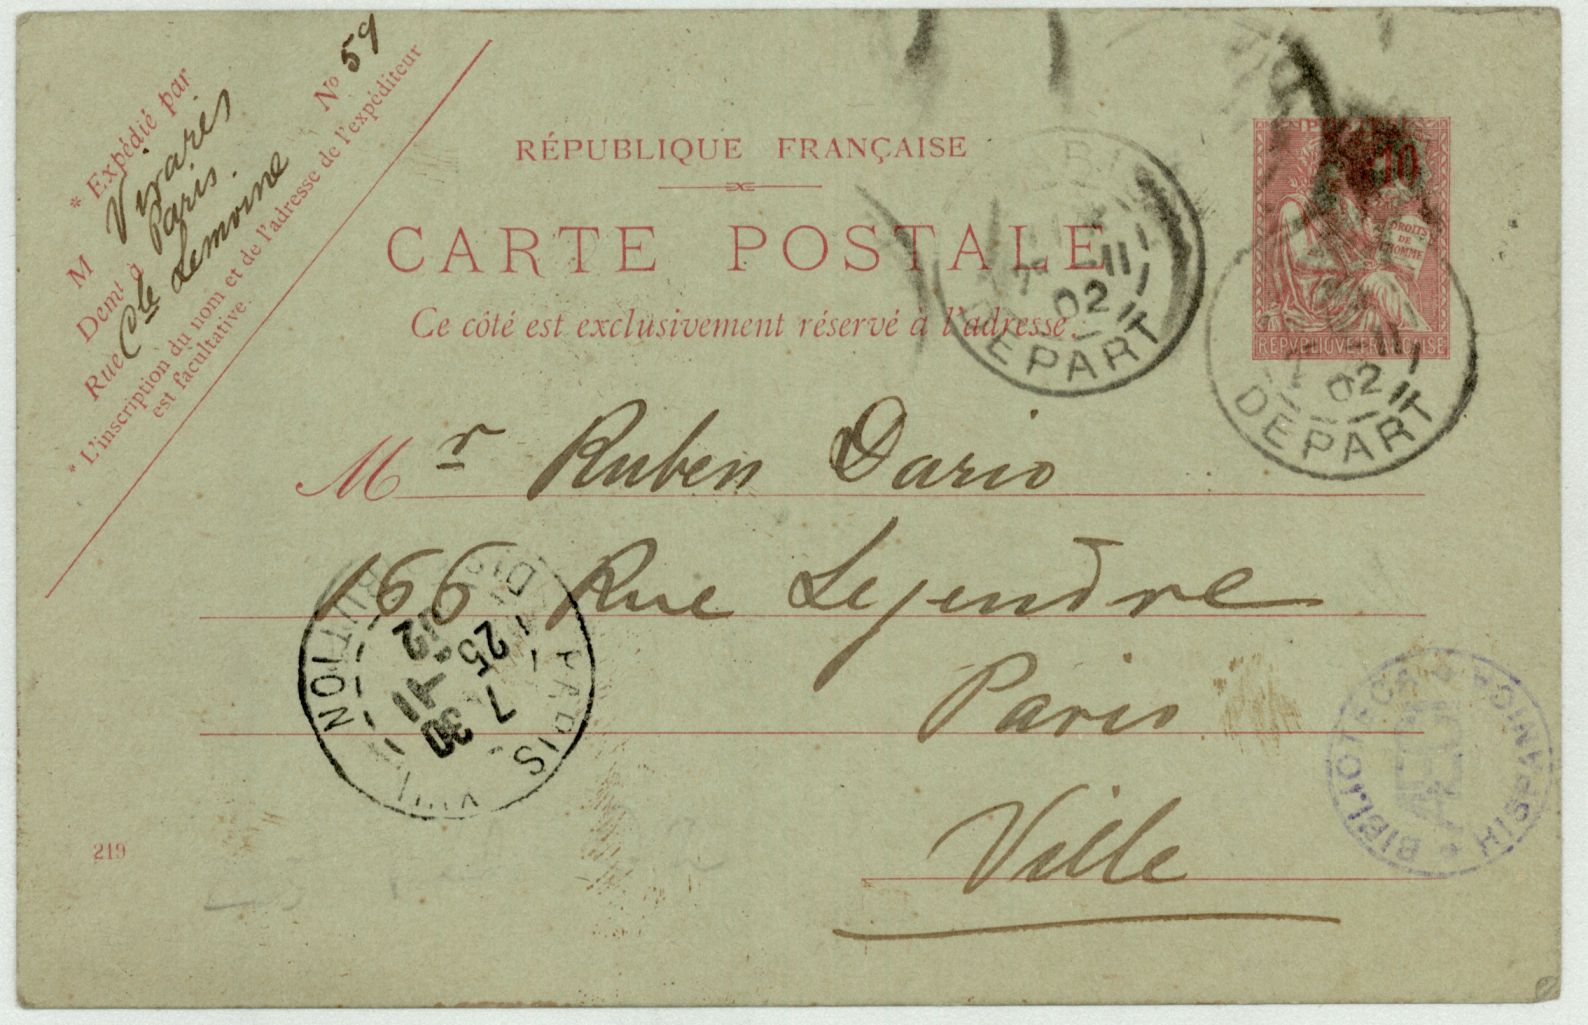 * Expédié par
M Vivarès
Demt à Paris.
Rue Cte Lemoine No 59
* L'inscription du nom et de l'adresse de l'expéditeur
est facultative.
RÉPUBLIQUE FRANÇAISE
CARTE POSTALE
Ce côté est exclusivement réservé à l'adresse.
10
DROITS
DE
L'HOMME
REPVBLIQVE FRANÇAISE
-11
02
DEPART
-11
02
DEPART
Mr Ruben Dario
166 Rue Lejendre
Paris
Ville
PARIS
DISTRIBUTION
7 30
25 -11
02
BIBLIOTECA HISPANICA
219